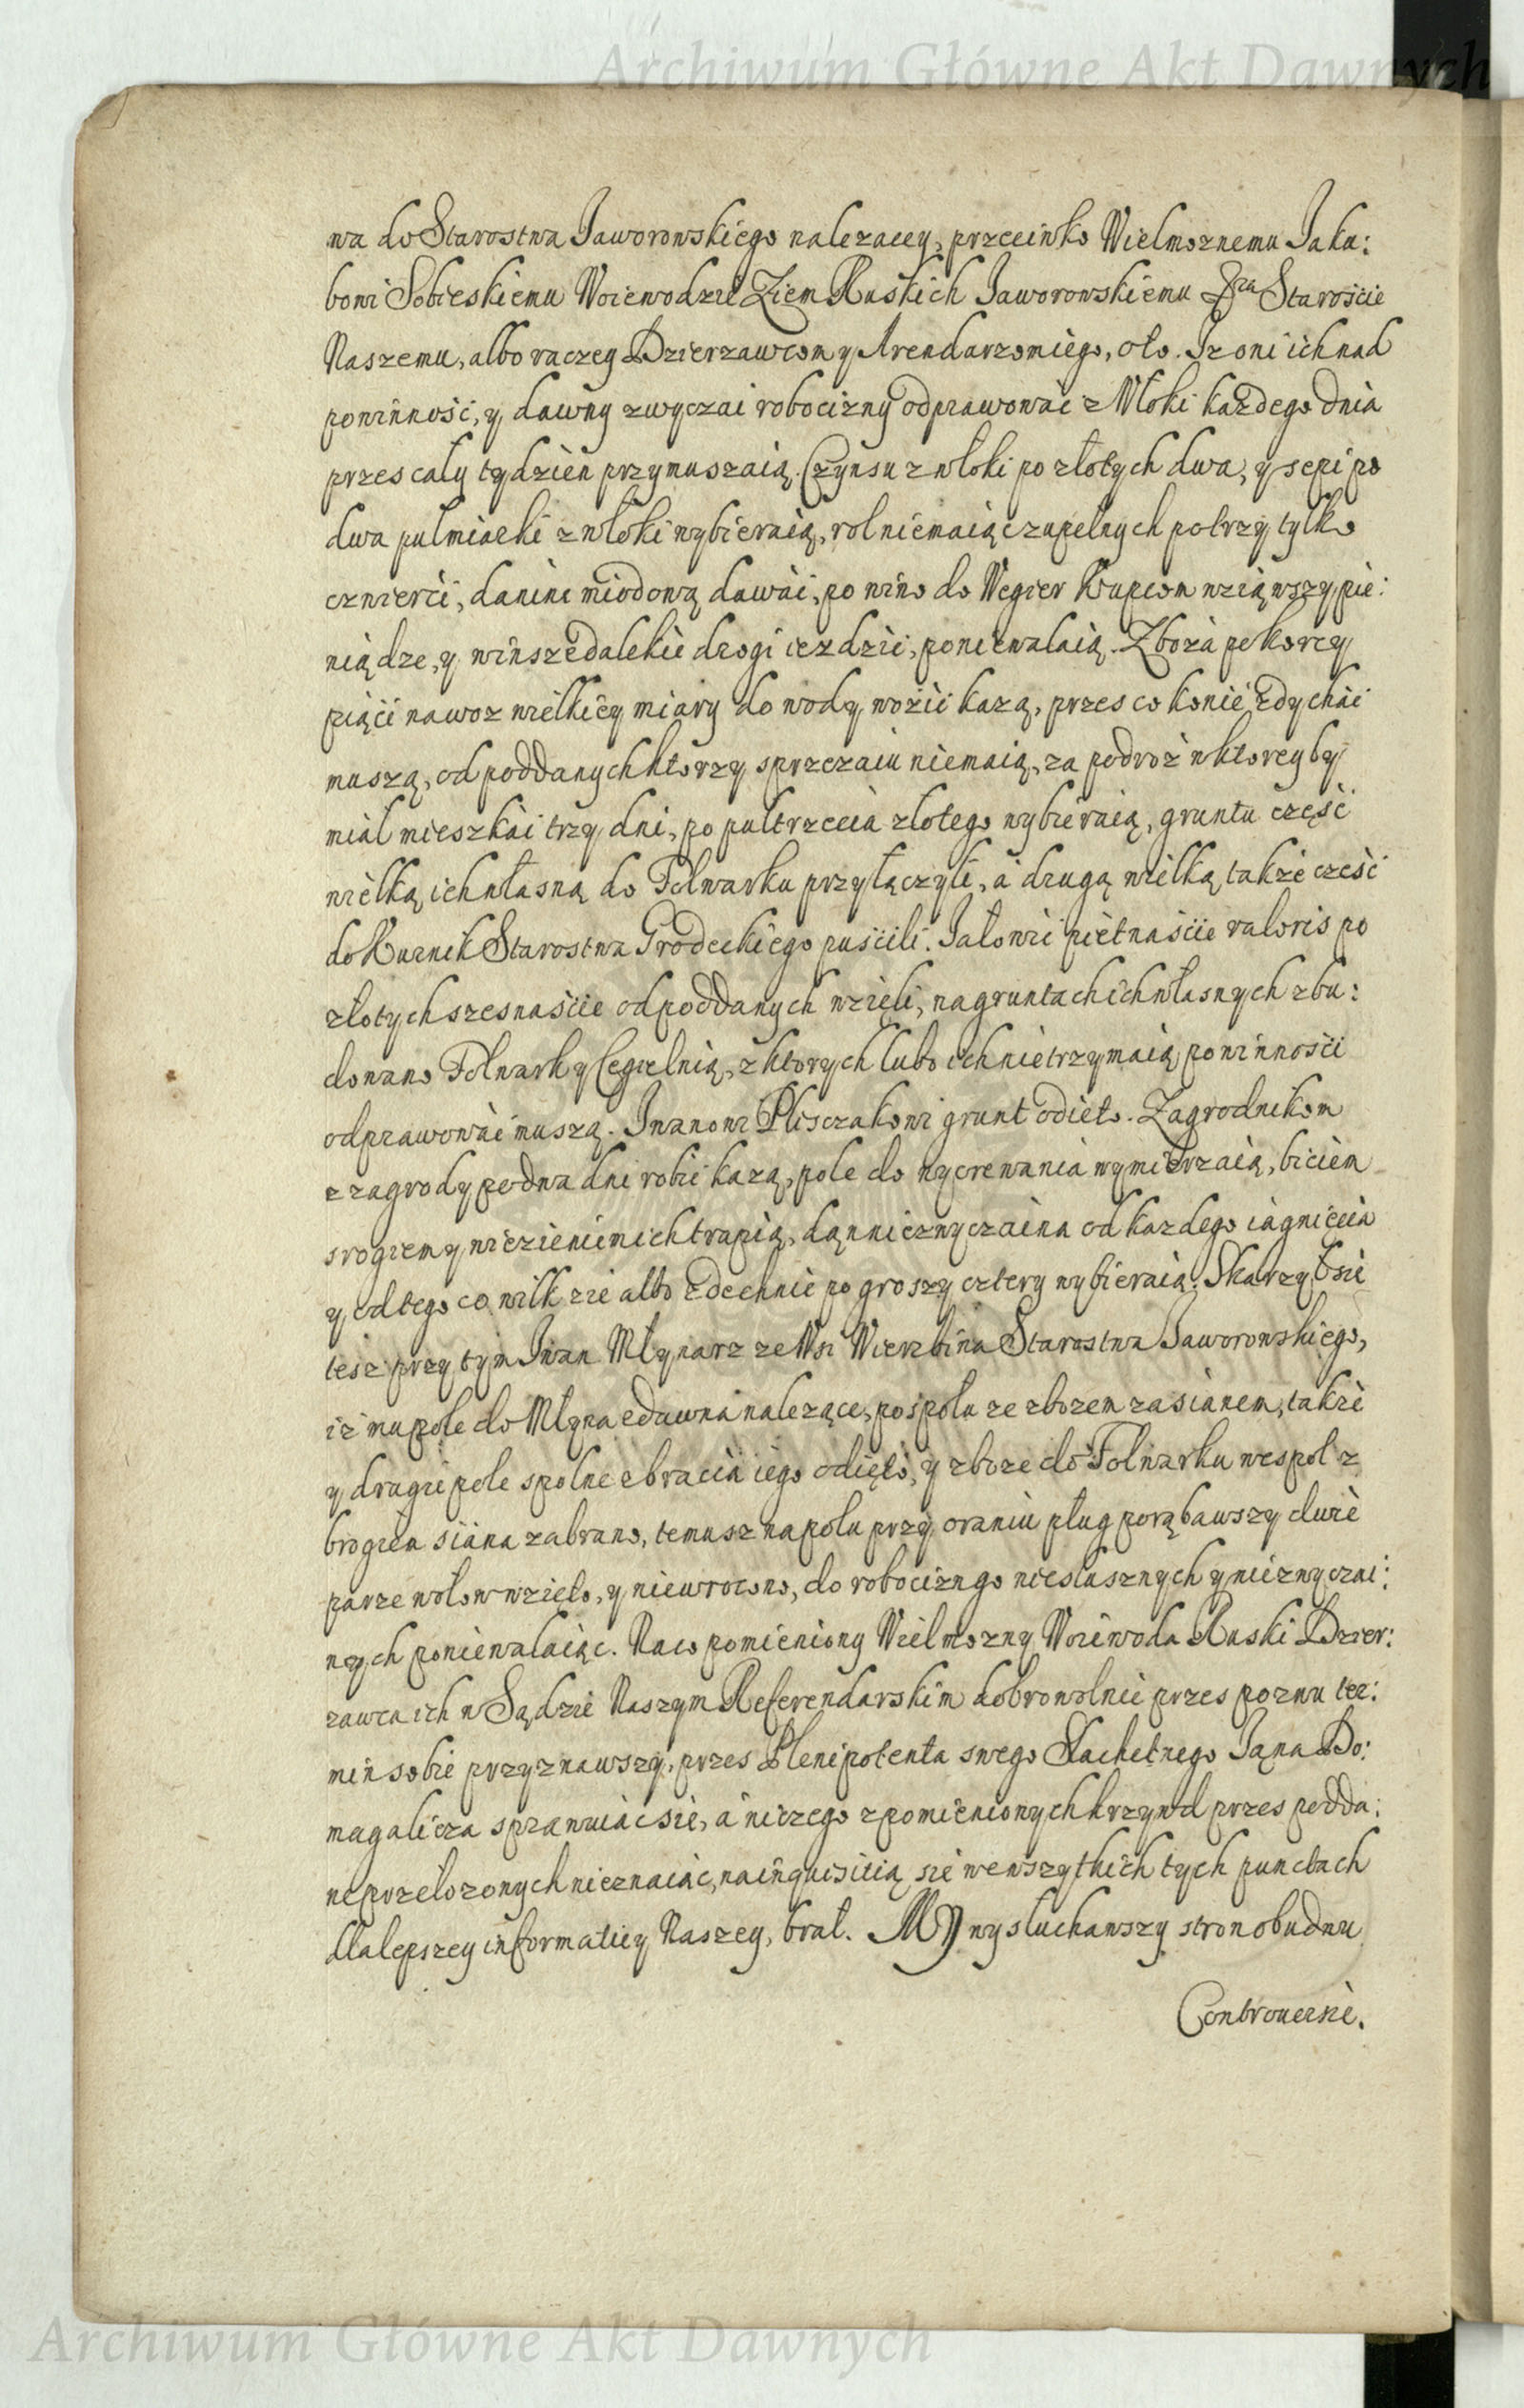 Archiwum Główne Akt Dawnych
wa do Starostwa Jaworowskiego nalezacey, przeciwko Wielmoznemu Jaku:
bowi Sobieskiemu Woiewodzie Ziem Ruskich Jaworowskiemu &ra Starosćie
Naszemu, albo raczey Dzierzawcom y Arendarzom iego, oto. Iz oni ich nad
powinność, y dawny zwyczai robocizny odprawować z Włoki kazdego dnia
przes cały tydzień przymuszaią. Czynsu z włoki po złotych dwa, y sepi po
dwa pulmiarki z włoki wybieraią, rol niemaiąc zupełnych po trzy tylko
czwierći, danine miodową dawać, po wino do Wegier kupcom wziąwszy pie:
niądze, y w insze dalekie drogi iezdzić, poniewalaią. Zboża po korcy
piąći nawoz wielkiey miary do wody wozić kazą, przes co konie zdycháć
muszą, od poddanych ktorzy sprzezaiu niemaią, za podroż w ktorey by
miał mieszkáć trzy dni, po pultrzecia złotego wybieraią, gruntu część
wielką ich własną do Folwarku przyłączyli, a drugą wielką także cześć
do Kurnik Starostwa Grodeckiego puśćili. Jałowic piętnaśćie valoris po
złotych szesnaśćie od poddanych wzięli, na gruntach ich własnych zbu:
dowano Folwark y Cegielnią, z ktorych lubo ich nietrzymaią powinnośći
odprawować muszą. Iwanowi Plisczakowi grunt odieto. Zagrodnikom
z zagrody po dwa dni robić kazą, pole do wyorewania wymierzaią, bićiem
srogiem y wiezieniem ich trapią, dań niezwyczaina od kazdego iagniecia
y od tego co wilk zie albo zdechnie po groszy cztery wybieraią. Skarzył sie
tesz przy tym Iwan Młynarz ze Wsi Wierzbina Starostwa Jaworowskiego,
iż mu pole do Młyna zdawna nalezące, pospołu ze zbozem zasianem, także
y drugie pole spolne z bracia iego odięto, y zboze do Folwarku wespoł z
brogiem siana zabrano, temusz na polu przy oraniu pług porąbawszy dwie
parze wołow wzięto, y niewrocono, do robocizn go niesłusznych y niezwyczai:
nych poniewalaiąc. Naco pomieniony Wielmozny Woiewoda Ruski Dzier:
zawca ich w Sądzie Naszym Referendarskim dobrowolnie przes pozwu ter:
min sobie przyznawszy, przes Plenipotenta swego Slachetnego Jana Do:
magalicza sprawuiác sie, a niczego z pomienionych krzywd przes podda:
ne przełozonych nieznaiác, na inquisitią sie we wszytkich tych punctach
dla lepszey informatiey Naszey, brał. My wysłuchawszy stron obudwu
Controuersie.
Archiwum Główne Akt Dawnych